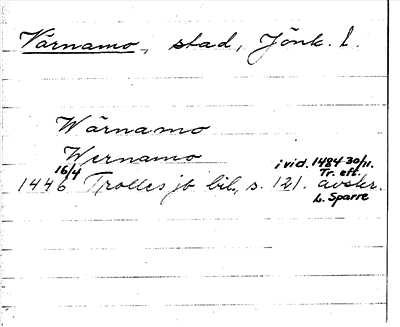 Värnamo, stad, Jönk. l.
Wärnamo
Wernamo
i vid. 1484 30/11.
16/4 Tr. eft.
1446 Trolles jb bil., s. 121. avskr.
L. Sparre